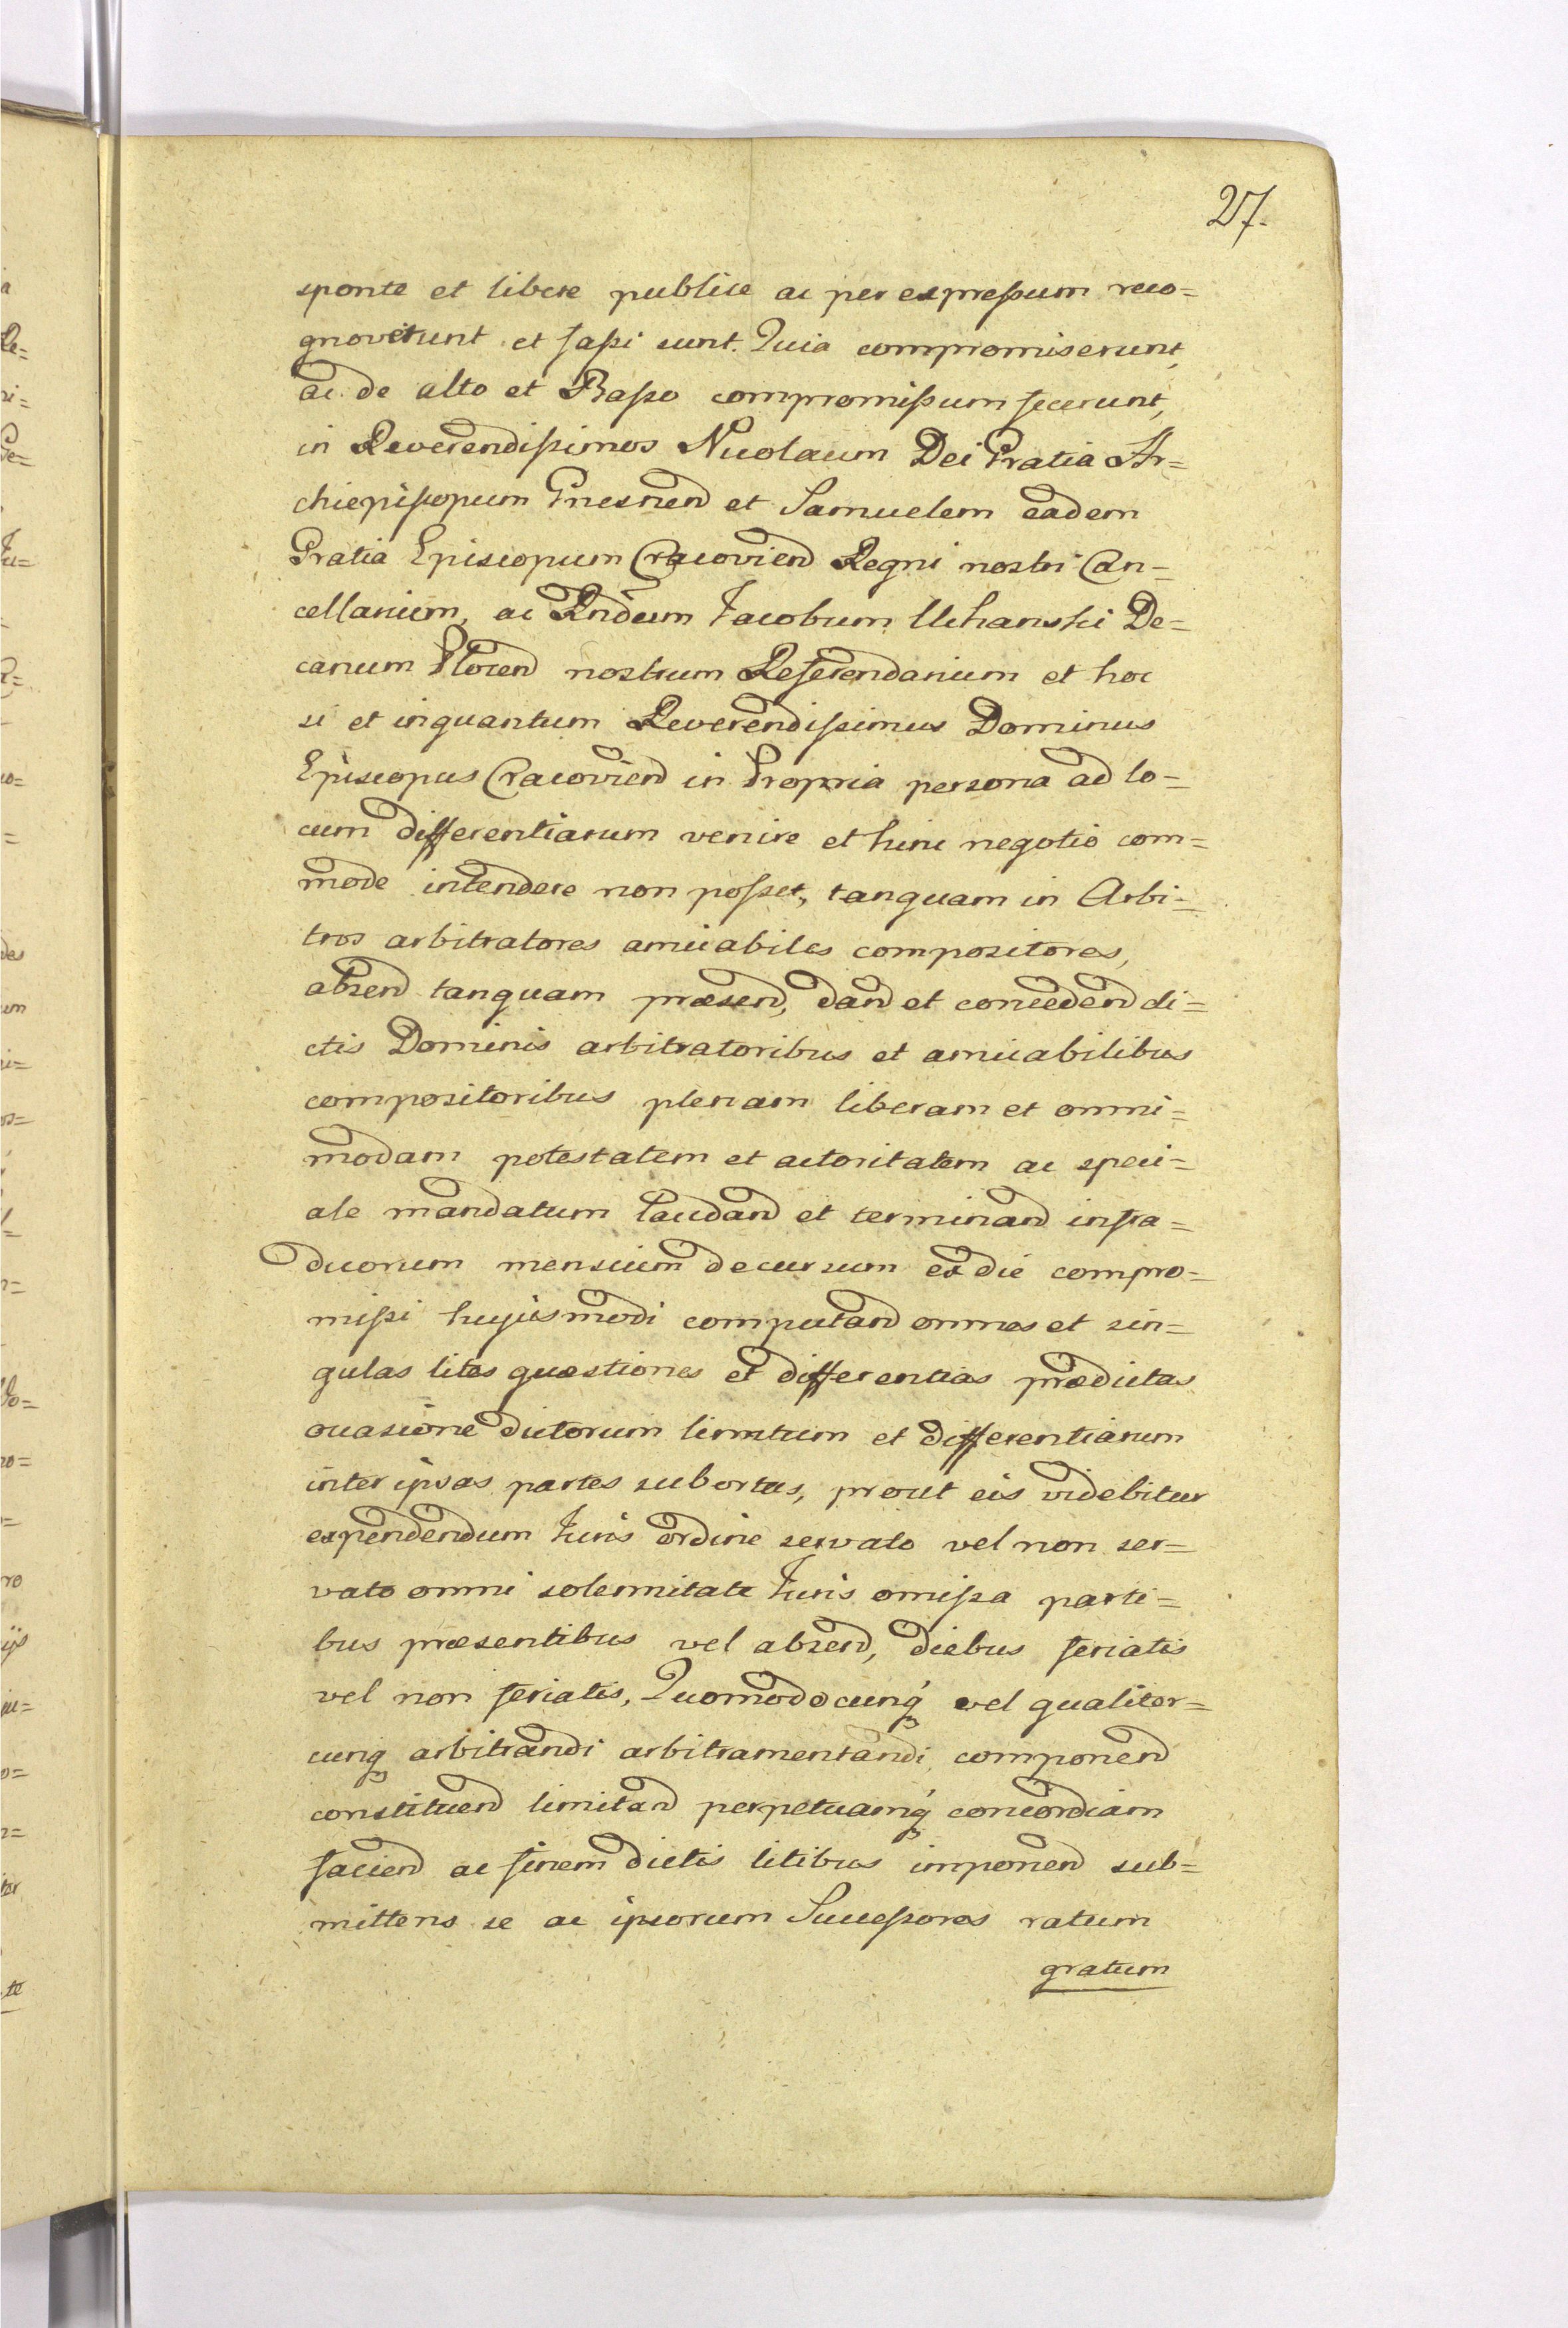 27.
sponte et libere publice ac per expreßum reco=
gnoverunt et faßi sunt. Quia compromiserunt,
ac de alto et Baßo compromißum fecerunt,
in Reverendißimos Nicolaum Dei Gratia Ar=
chiepiscopum Gnesnen et Samuelem eadem
Gratia Episcopum Cracovien Regni nostri Can=
cellarium, ac Rndum Jacobum Uchanski De=
canum Plocen nostrum Referendarium et hoc
si et inquantum Reverendißimus Dominus
Episcopus Cracovien in Propria persona ad lo=
cum differentiarum venire et huic negotio com=
mode intendere non poßet, tanquam in Arbi=
tros arbitratores amicabiles compositores,
absen tanquam præsen, dan et conceden di=
ctis Dominis arbitratoribus et amicabilibus
compositoribus plenam liberam et omni=
modam potestatem et actoritatem ac speci=
ale mandatum laudan et terminan infra=
duorum mensium decursum ex die compro=
mißi hujusmodi computan omnes et sin=
gulas lites quæstiones et differentias prædictas
occasione dictorum limitum et differentiarum
inter ipsas partes subortas, prout eis videbitur
expendendum Juris ordine servato vel non ser=
vato omni solemnitate Juris omißa parti=
bus præsentibus vel absen, diebus feriatis
vel non feriatis, Quomodocunq vel qualiter=
cunq arbitrandi arbitramentandi componen
constituen limitan perpetuamq concordiam
facien ac finem dictis litibus imponen sub=
mittens se ac ipsorum Succeßores ratum
gratum